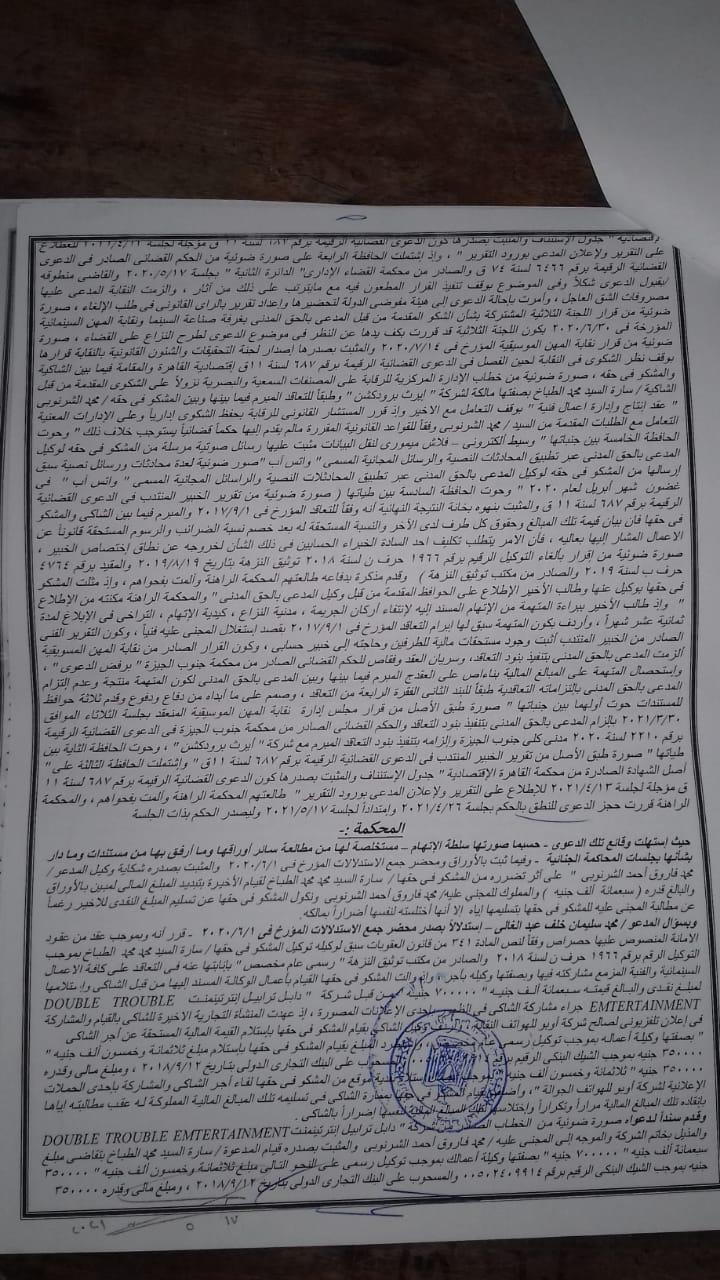 إقتصادية " جدول الإستئناف والمثبت بصدرها كون الدعوى القضائية الرقيمة برقم ٦٨٧ لسنة ١١ ق مؤجلة لجلسة للإطلاع
على التقرير ولإعلان المدعى بورود التقرير " ، وإذ إشتملت الحافظة الرابعة على صورة ضوئية من الحكم القضائى الصادر فى الدعوى
القضائية الرقيمة برقم ٦٤٦٦ لسنة ٧٤ ق والصادر من محكمة القضاء الإدارى" الدائرة الثانية " بجلسة ٢٠٢٠/٥/١٧ والقاضى منطوقه
/بقبول الدعوى شكلاً وفى الموضوع بوقف تنفيذ القرار المطعون فيه مع مايترتب على ذلك من أثار ، وألزمت النقابة المدعى عليها
مصروفات الشق العاجل ، وأمرت بإحالة الدعوى إلى هيئة مفوضى الدولة لتحضيرها وإعداد تقرير بالراى القانونى فى طلب الإلغاء ، صورة
ضوئية من قرار اللجنة الثلاثية المشتركة بشأن الشكو المقدمة من قبل المدعى بالحق المدنى بغرفة صناعة السينما ونقابة المهن السينمائية
المؤرخة فى ٢٠٢٠/٦/٣٠ بكون اللجنة الثلاثية قد قررت بكف يدها عن النظر فى موضوع الدعوى لطرح النزاع على القضاء ، صورة
ضوئية من قرار نقابة المهن الموسيقية المؤرخ فى ٢٠٢٠/٧/١٤ والمثبت بصدرها إصدار لجنة التحقيقات والشئون القانونية بالنقابة قرارها
بوقف نظر الشكوى فى النقابة لحين الفصل فى الدعوى القضائية الرقيمة برقم ٦٨٧ لسنة ١١ق إقتصادية القاهرة والمقامة فيما بين الشاكية
والمشكو فى حقه ، صورة ضوئية من خطاب الإدارة المركزية للرقابة على المصنفات السمعية والبصرية نزولاً على الشكوى المقدمة من قبل
الشاكية / سارة السيد محمد الطباخ بصفتها مالكة لشركة " إيرث برودكشن " وطبقاً للتعاقد المبرم فيما بينها وبين المشكو فى حقه / محمد الشرنوبى
" عقد إنتاج وإدارة اعمال فنية " بوقف التعامل مع الاخير وإذ قرر المستشار القانونى للرقابة بحفظ الشكوى إدارياً وعلى الإدارات المعنية
التعامل مع الطلبات المقدمة من السيد / محمد الشرنوبى وفقاً للقواعد القانونية المقررة مالم يقدم إليها حكماً قضائياً يستوجب خلاف ذلك " وحوت
الحافظة الخامسة بين جنباتها " وسيط ألكترونى – فلاش ميمورى لنقل البيانات مثبت عليها رسائل صوتية مرسلة من المشكو فى حقه لوكيل
المدعى بالحق المدنى عبر تطبيق المحادثات النصية والرسائل المجانية المسمى " واتس أب "صور ضوئية لعدة محادثات ورسائل نصية سبق
إرسالها من المشكو فى حقه لوكيل المدعى بالحق المدنى عبر تطبيق المحادثالات النصية والراسائل المجانية المسمى " واتس أب " فى
غضون شهر أبريل لعام ٢٠٢٠ " وحوت الحافظة السادسة بين طياتها ( صورة ضوئية من تقرير الخبير المنتدب فى الدعوى القضائية
الرقيمة برقم ٦٨٧ لسنة ١١ ق والمثبت بنهوه بخانة النتيجة النهائية أنه وفقاً للتعاقد المؤرخ فى ٢٠١٧/٩/١ والمبرم فيما بين الشاكى والمشكو
فى حقها فان بيان قيمة تلك المبالغ وحقوق كل طرف لدى الأخر والنسبة المستحقة له بعد خصم نسبة الضرائب والرسوم المستحقة قانوناً عن
الاعمال المشار إليها بعاليه ، فأن الامر يتطلب تكليف احد السادة الخبراء الحسابين فى ذلك الشأن لخروجه عن نطاق إختصاص الخبير ،
صورة ضوئية من إقرار بألغاء التوكيل الرقيم برقم ١٩٦٦ حرف ن لسنة ٢٠١٨ توثيق النزهة بتاريخ ٢٠١٩/٨/١٩ والمقيد برقم ٤٧٦٤
حرف ب لسنة ٢٠١٩ والصادر من مكتب توثيق النزهة ) وقدم مذكرة بدفاعه طالعتهم المحكمة الراهنة وألمت بفحواهم ، وإذ مثلت المشكو
فى حقها بوكيل عنها وطالب الأخير الإطلاع على الحوافظ المقدمة من قبل وكيل المدعى بالحق المدنى " والمحكمة الراهنة مكنته من الإطلاع
" وإذ طالب الأخير ببراءة المتهمة من الإتهام المسند إليه لإنتفاء أركان الجريمة ، مدنية النزاع ، كيدية الإتهام ، التراخى فى الإبلاغ لمدة
ثمانية عشر شهراً ، وأردف بكون المتهمة سبق لها ابرام التعاقد المؤرخ فى ٢٠١٧/٩/١ بقصد إستغلال المجنى عليه فنياً ، وكون التقرير الفنى
الصادر من الخبير المنتدب أثبت وجود مستحقات مالية للطرفين وحاجته إلى خبير حسابى ، وكون القرار الصادر من نقابة المهن المسويقية
ألزمت المدعى بالحق المدنى بتنفيذ بنود التعاقد، وسريان العقد وفقاص للحكم القضائى الصادر من محكمة جنوب الجيزة " برفض الدعوى " ،
وإستحصال المتهمة على المبالغ المالية بناءاص على العقدج المبرم فيما بينها وبين المدعى بالحق المدنى لكون المتهمة منتجة وعدم إلتزام
المدعى بالحق المدنى بإلتزاماته التعاقدية طبقاً للبند الثانى الفقرة الرابعة من التعاقد ، وصمم على ما ابداه من دفاع ودفوع وقدم ثلاثة حوافظ
للمستندات حوت أولهما بين جنباتها " صورة طبق الأصل من قرار مجلس إدارة نقابة المهن الموسيقية المنعقد بجلسة الثلاثاء الموافق
٢٠٢١/٣/٣٠ بإلزام المدعى بالحق المدنى بتنفيذ بنود التعاقد والحكم القضائى الصادر من محكمة جنوب الجيزة فى الدعوى القضائية الرقيمة
برقم ٢٢١٠ لسنة ٢٠٢٠ مدنى كلى جنوب الجيزة وإلزامه بتنفيذ بنود التعاقد المبرم مع شركة " أيرث برودكشن " ، وحوت الحافظة الثاية بين
طياتها " صورة طبق الأصل من تقرير الخبير المنتدب فى الدعوى القضائية الرقيمة برقم ٦٨٧ لسنة ١١ق " وإشتملت الحافظة الثالثة على "
أصل الشهادة الصادرة من محكمة القاهرة الإقتصادية " جدول الإستئناف والمثبت بصدرها كون الدعوى القضائية الرقيمة برقم ٦٨٧ لسنة ١١
ق مؤجلة لجلسة ٢٠٢١/٤/١٣ للإطلاع على التقرير ولإعلان المدعى بورود التقرير " طالعتهم المحكمة الراهنة وألمت بفحواهم ، والمحكمة
الراهنة قررت حجز الدعوى للنطق بالحكم بجلسة ٢٠٢١/٤/٢٦ وإمتداداً لجلسة ٢٠٢١/٥/١٧ وليصدر الحكم بذات الجلسة
المحكمة :-
حيث إستهلت وقائع تلك الدعوى - حسبما صورتها سلطة الإتهام – مستخلصة لها من مطالعة سائر أوراقها وما أرفق بها من مستندات وما دار
بشأنها بجلسات المحاكمة الجنائية - وفيما ثبت بالأوراق ومحضر جمع الاستدلالات المؤرخ فى ٢٠٢٠/٦/١ والمثبت بصدره شكاية وكيل المدعو /
محمد فاروق أحمد الشرنوبى على أثر تضرره من المشكو فى حقها / سارة السيد محمد محمد الطباخ لقيام الأخيرة بتبديد المبلغ المالى المبين بالأوراق
والبالغ قدره ( سبعمائة ألف جنيه ) والمملوك للمجنى عليه/ محمد فاروق أحمد الشرنوبى ونكول المشكو فى حقها عن تسليم المبلغ النقدى للاخير رغماً
عن مطالبة المجنى عليه للمشكو فى حقها بتسليمها إياه إلا أنها أختلسته لنفسها أضراراً بمالكه.
وبسؤال المدعو / محمد سليمان خلف عبد العالى – إستدلالاً بصدر محضر جمع الاستدلالات المؤرخ فى ٢٠٢٠/٦/١ - قرر أنه وبموجب عقد من عقود
الامانة المنصوص عليها حصراص وفقاً لنص المادة ٣٤١ من قانون العقوبات سبق لوكيله توكيل المشكو فى حقها / سارة السيد محمد محمد الطباخ بموجب
التوكيل الرقم برقم ١٩٦٦ حرف ن لسنة ٢٠١٨ والصادر من مكتب توثيق النزهة " رسمى عام مخصص " بإنابتها عنه فى التعاقد على كافة الاعمال
السينمائية والفنية المزمع مشاركته فيها وبصفتها وكيله بأجر، وإذ والت المشكو فى حقها القيام بأعمال الوكالة المسند إليها من قبل الشاكى وإستلامها
لمبلغ نقدى والبالغ قيمته سبعمائة ألف جنيه " ٧٠٠٠٠٠ جنيه " من قبل شركة " دابل ترابيل إنترتينمنت DOUBLE TROUBLE
EMTERTAINMENT جراء مشاركة الشاكى فى إحدى الإعلانات المصورة ، إذ عهدت المنشأة التجارية الاخيرة للشاكى بالقيام والمشاركة
فى إعلان تلفزيونى لصالح شركة أوبو للهواتف النقالة وكيل الشاكى بقيام المشكو فى حقها بإستلام القيمة المالية المستحقة عن أجر الشاكى
" بصفتها وكيلة أعماله بموجب توكيل رسمى عام بقيام المشكو فى حقها بإستلام مبلغ ثلاثمائة وخمسون ألف جنيه "
٣٥٠٠٠٠ جنيه بموجب الشيك البنكى الرقيم برقم على البنك التجارى الدولى بتاريخ ٢٠١٨/٩/١٢ ، ومبلغ مالى وقدره
٣٥٠٠٠٠ جنيه " ثلاثمائة وخمسون ألف جنيه بموجب إستلام نقدية موقع من المشكو فى حقها لقاء أجر الشاكى والمشاركة بإحدى الحملات
الإعلانية لشركة أوبو للهواتف الجوالة " ، قيام المشكو فى حقها الشاكى فى تسليمه تلك المبالغ المالية المملوكة له عقب مطالبته إياها
بإنقاده تلك المبالغ مراراً وتكراراً وإختلاس تلك المبالغ المالية لنفسها إضراراً بالشاكى.
وقدم سنداً لدعواه صورة ضوئية من الخطاب شركة " دابل ترابيل إنترتينمنت DOUBLE TROUBLE EMTERTAINMENT
والمذيل بخاتم الشركة والموجه إلى المجنى عليه / محمد فاروق أحمد الشرنوبى والمثبت بصدره قيام المدعوة / سارة السيد محمد الطباخ بتقاضى مبلغ
سبعمائة ألف جنيه " ٧٠٠٠٠٠ جنيه " بصفتها وكيلة أعمالك بموجب توكيل رسمى على النحو التالى مبلغ ثلاثمائة وخمسون ألف جنيه " ٣٥٠٠٠٠
جنيه بموجب الشيك البنكى الرقيم برقم ٠٠٥٠٢٤٠٩٩١٤ والمسحوب على البنك التجارى الدولى بتاريخ ٢٠١٨/٩/١٢ ، ومبلغ مالى وقدره ٣٥٠٠٠٠
١٧ ٥ ٢٠٢١